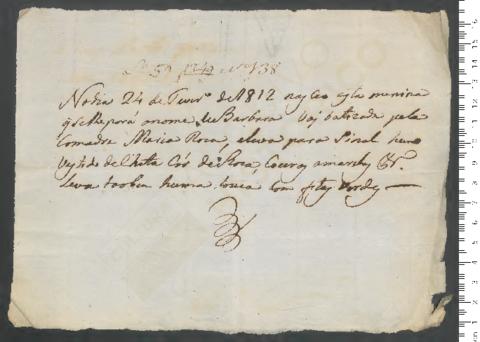 Nº 59 1349 Nº 138
No dia 24 de Fevrº de 1812 nasceo esta menina
q se lhe porá o nome de Barbara vay batizada pela
Comadre Maria Roza, eleva para Sinal hum
vestido de Chita Cor de Roza,
leva toobem huma touca com fitas verdes